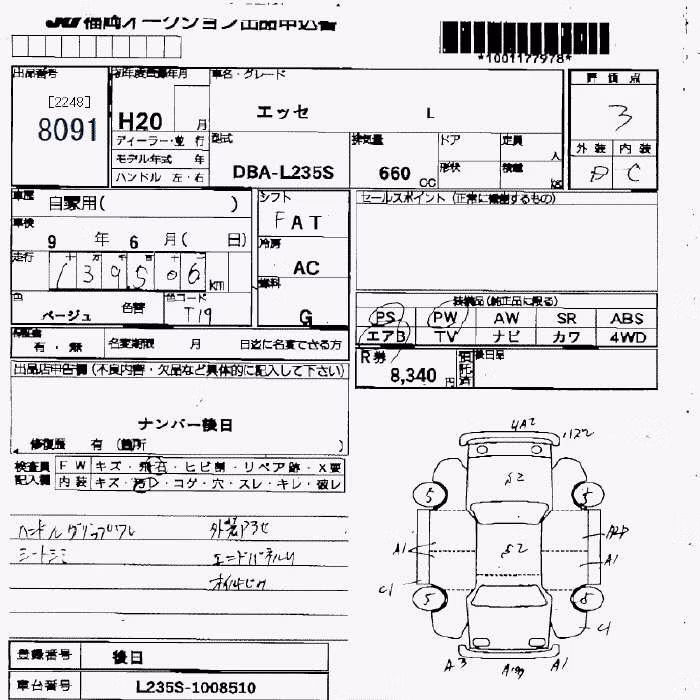 JU福岡オークション出品申込書
*1001177978*
出品番号
[2248]
8091
H20 月
ディーラー・並 行
モデル年式 年
ハンドル 左・右
車名・グレード
エッセ L
型式
DBA-L235S
排気量
660 CC
ドア
形状
定員 人
積載 kg
評 価 点
3
外 装 内 装
D C
車歴
自家用( )
車検
9 年 6 月( 日)
走行
139506 km
色
ベージュ
色替
色コード
T19
シフト
F A T
冷房
AC
燃料
G
セールスポイント
装備品(純正品に限る)
PS PW AW SR ABS
エアB TV ナビ カワ 4WD
有・無
名変期限 月 日迄に名変できる方
R券
8,340 円
後日品
出品店申告欄(不良内容・欠品など具体的に記入して下さい)
ナンバー後日
修復歴 有 (箇所 )
検査員
記入欄
F W キズ・飛石・ヒビ割・リペア跡・X要
内装 キズ・汚レ・コゲ・穴・スレ・キレ・破レ
シートシミ
4A2
S2
5 5
A1
S2
A1
C1
5 5
C1
A3
A1
登録番号 後日
車台番号 L235S-1008510